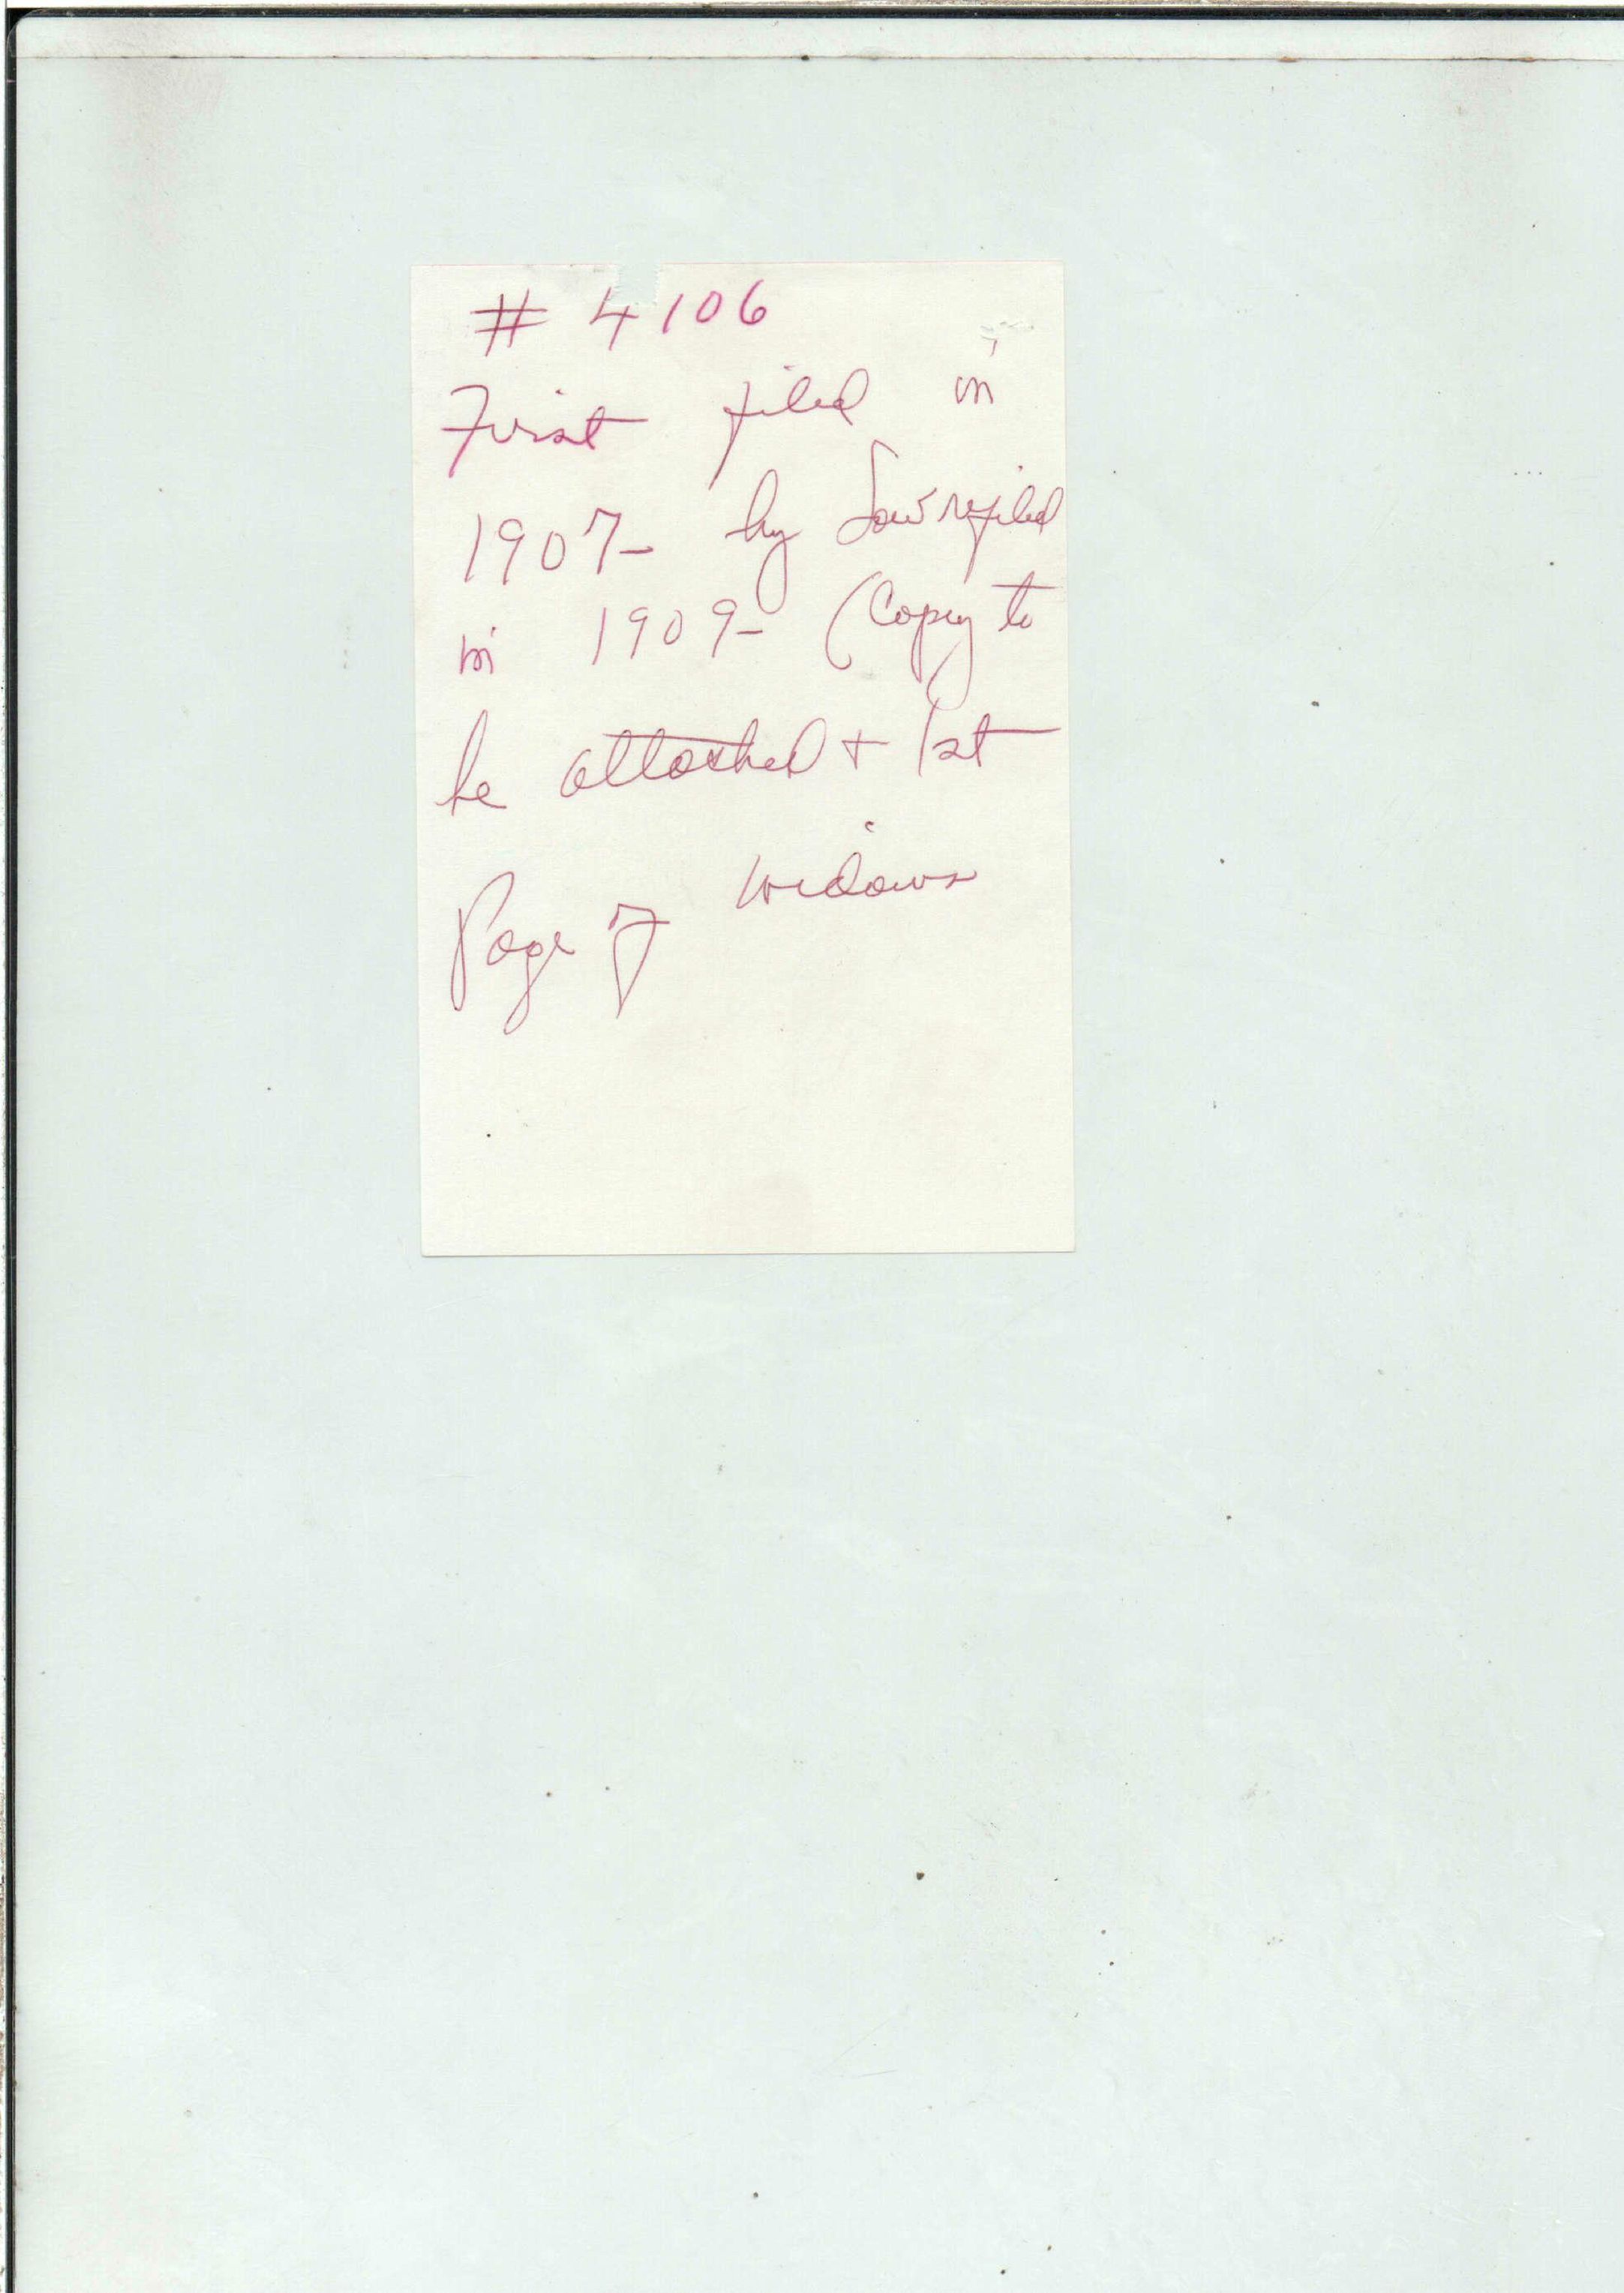 # 4106
First filed in
1907- by Law refiled
in 1909- (Copy to
be attached + 1st
Page of widows